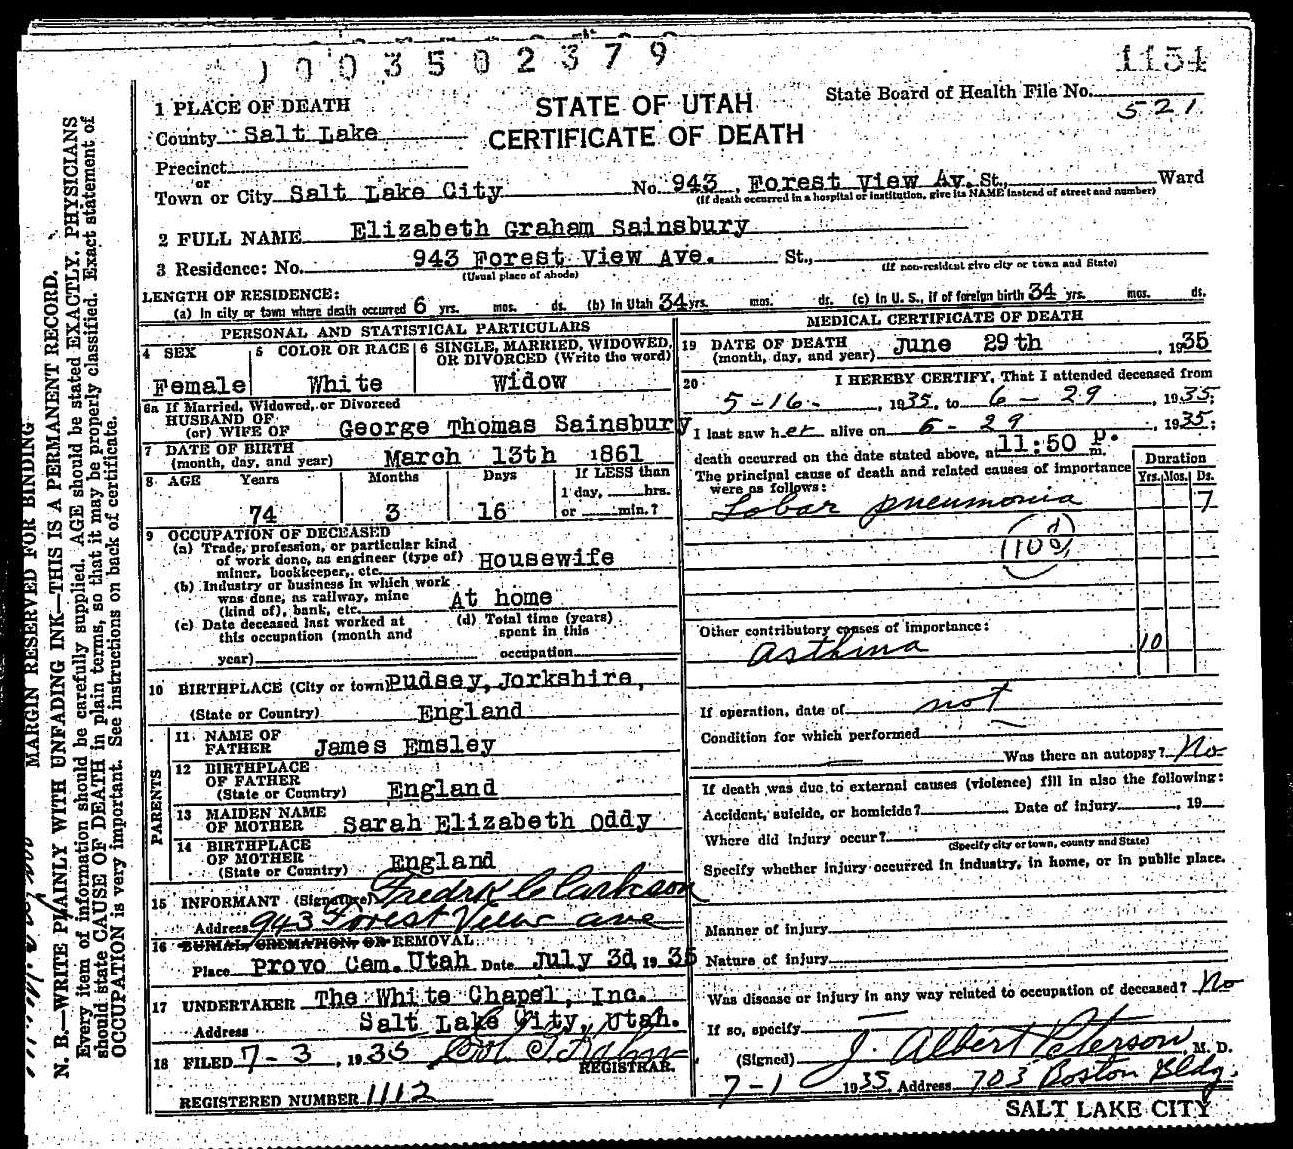 1003502379
1154
STATE OF UTAH
CERTIFICATE OF DEATH
State Board of Health File No.
521
1 PLACE OF DEATH
County Salt Lake
Precinct
or
Town or City Salt Lake City No. 943 Forest View Av. St., Ward
(If death occurred in a hospital or institution, give its NAME instead of street and number)
2 FULL NAME Elizabeth Graham Sainsbury
3 Residence: No. 943 Forest View Ave. St.,
(Usual place of abode) (If non-resident give city or town and State)
LENGTH OF RESIDENCE:
(a) In city or town where death occurred 6 yrs. mos. ds. (b) In Utah 34 yrs. mos. ds. (c) In U. S., if of foreign birth 34 yrs. mos. ds.
PERSONAL AND STATISTICAL PARTICULARS
4 SEX 5 COLOR OR RACE 6 SINGLE, MARRIED, WIDOWED, OR DIVORCED (Write the word)
Female White Widow
6a If Married, Widowed, or Divorced
HUSBAND OF
(or) WIFE OF George Thomas Sainsbury
7 DATE OF BIRTH
(month, day, and year) March 13th 1861
8 AGE Years Months Days If LESS than
1 day, hrs.
74 3 16 or min.?
9 OCCUPATION OF DECEASED
(a) Trade, profession, or particular kind
of work done, as engineer (type of)
miner, bookkeeper, etc. Housewife
(b) Industry or business in which work
was done, as railway, mine
(kind of), bank, etc. At home
(c) Date deceased last worked at
this occupation (month and
year)
(d) Total time (years)
spent in this
occupation
10 BIRTHPLACE (City or town) Pudsey, Jorkshire,
(State or Country) England
PARENTS
11 NAME OF
FATHER James Emsley
12 BIRTHPLACE
OF FATHER
(State or Country) England
13 MAIDEN NAME
OF MOTHER Sarah Elizabeth Oddy
14 BIRTHPLACE
OF MOTHER
(State or Country) England
15 INFORMANT (Signature) Fredrk C Clarkson
Address 943 Forest View ave
16 BURIAL, CREMATION, OR REMOVAL
Place Provo Cem. Utah Date July 3d, 1935
17 UNDERTAKER The White Chapel, Inc.
Address Salt Lake City, Utah.
18 FILED 7-3, 1935
REGISTRAR.
REGISTERED NUMBER 1112
MEDICAL CERTIFICATE OF DEATH
19 DATE OF DEATH
(month, day, and year) June 29th, 1935
20 I HEREBY CERTIFY, That I attended deceased from
5-16-, 1935, to 6-29, 1935;
I last saw her alive on 6-29, 1935;
death occurred on the date stated above, at 11:50 p. m.
The principal cause of death and related causes of importance
were as follows:
Duration
Yrs. Mos. Ds.
Lobar pneumonia 7
Other contributory causes of importance:
Asthma 10
If operation, date of not
Condition for which performed
Was there an autopsy? No
If death was due to external causes (violence) fill in also the following:
Accident, suicide, or homicide? Date of injury, 19
Where did injury occur?
(Specify city or town, county and State)
Specify whether injury occurred in industry, in home, or in public place.
Manner of injury
Nature of injury
Was disease or injury in any way related to occupation of deceased? No
If so, specify
(Signed) J. Albert Peterson, M. D.
7-1 1935 Address 703 Boston Bldg.
SALT LAKE CITY
MARGIN RESERVED FOR BINDING
N. B.—WRITE PLAINLY WITH UNFADING INK—THIS IS A PERMANENT RECORD.
Every item of information should be carefully supplied. AGE should be stated EXACTLY. PHYSICIANS
should state CAUSE OF DEATH in plain terms, so that it may be properly classified. Exact statement of
OCCUPATION is very important. See instructions on back of certificate.